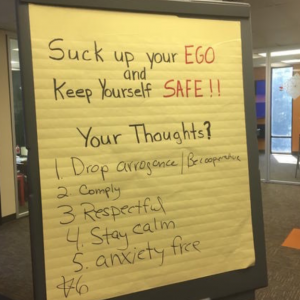 Suck up your EGO
and
Keep Yourself SAFE!!
Your Thoughts?
1 Drop arrogance / Be cooperative
2 Comply
3 Respectful
4. Stay calm
5. anxiety free